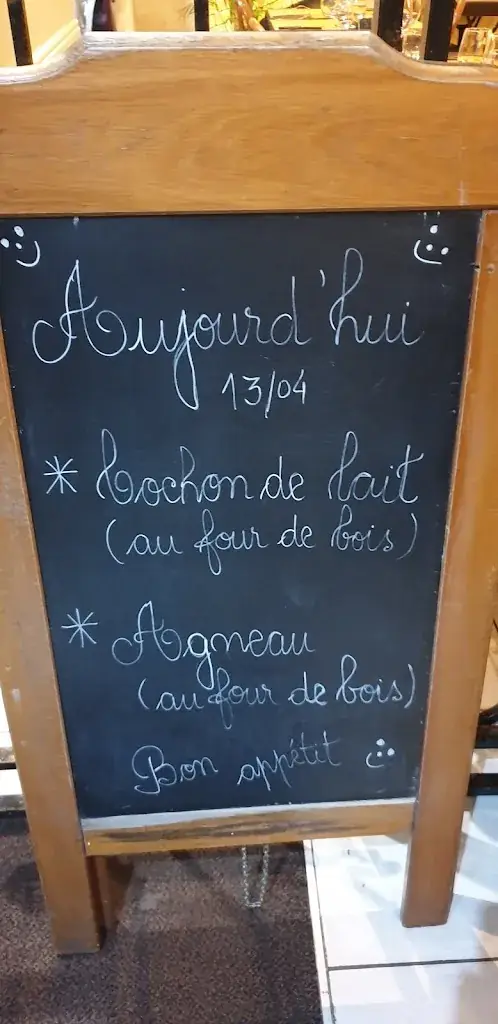 Aujourd'hui
13/04
* Cochon de lait
(au four de bois)
* Agneau
(au four de bois)
Bon appétit